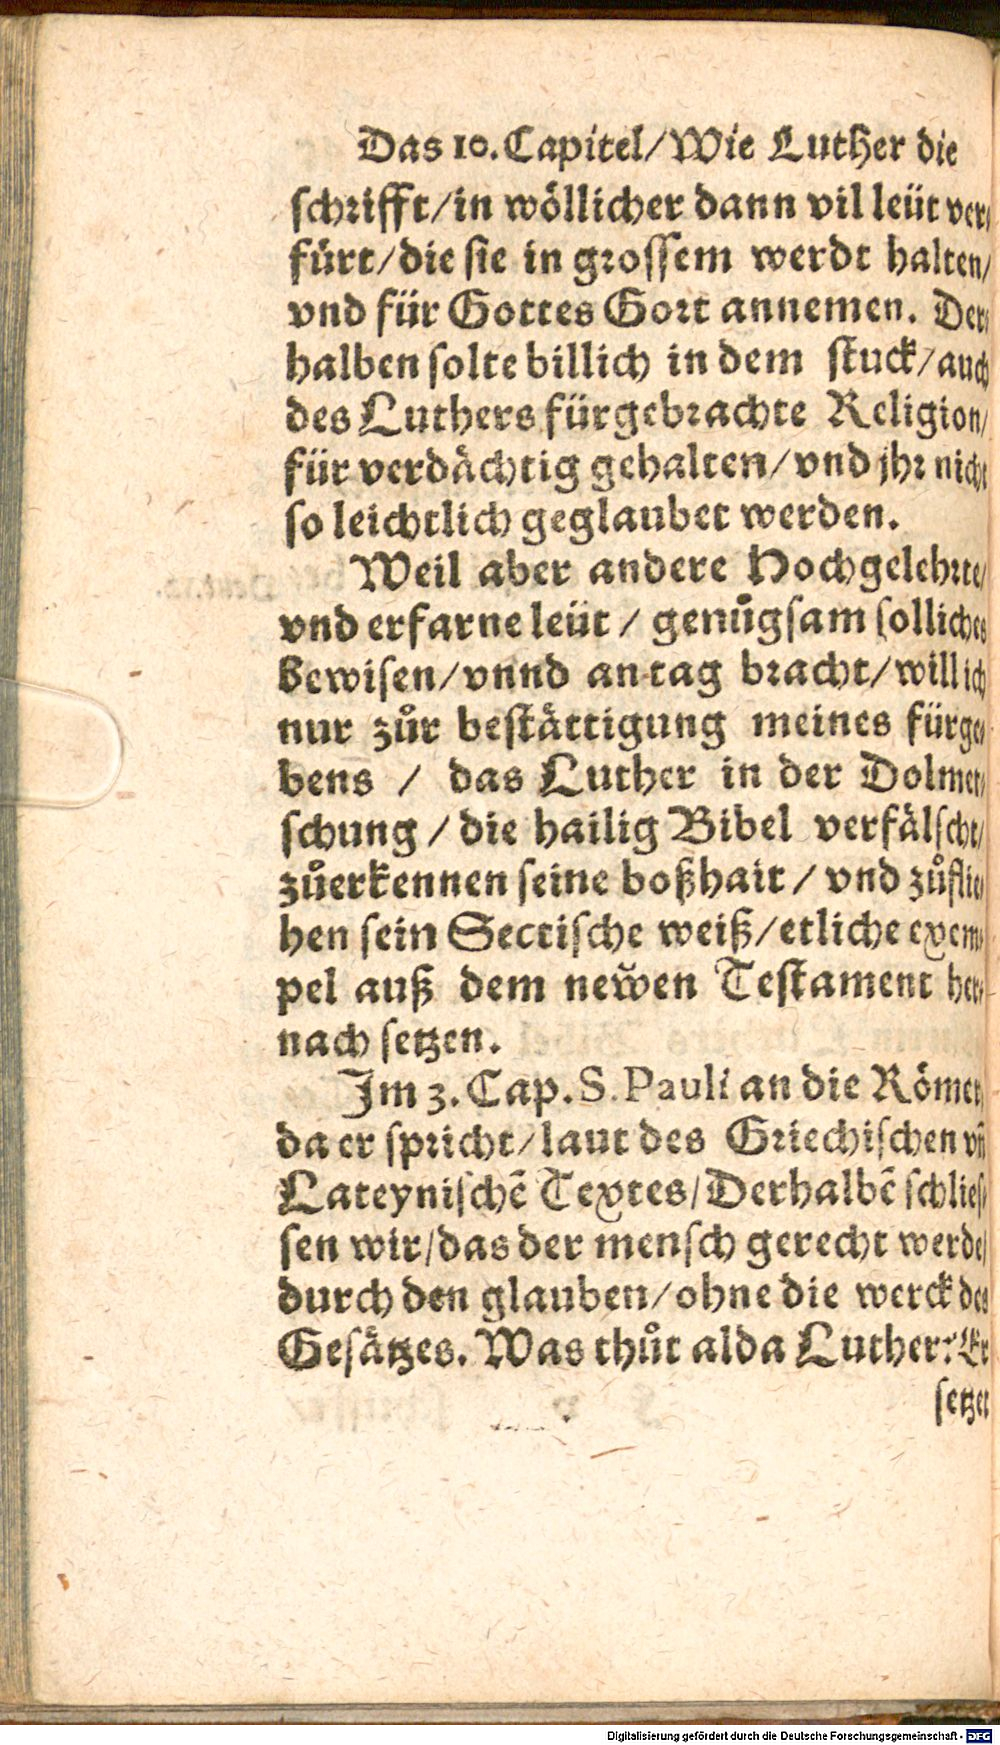 Das 10. Capitel/ Wie Luther die
schrifft/ in wöllicher dann vil leüt ver⸗
fürt/ die sie in grossem werdt halten/
vnd für Gottes Gort annemen. Der⸗
halben solte billich in dem stuck/ auch
des Luthers fürgebrachte Religion/
für verdächtig gehalten/ vnd jhr nicht
so leichtlich geglaubet werden.
Weil aber andere Hochgelehrte/
vnd erfarne leüt / genuͦgsam solliches
Bewisen/ vnnd an tag bracht/ will ich
nur zuͦr bestättigung meines fürge⸗
bens / das Luther in der Dolmet⸗
schung / die hailig Bibel verfälscht/
zuͦerkennen seine boßhait / vnd zuͦflie⸗
hen sein Sectische weiß/ etliche exem⸗
pel auß dem newen Testament her⸗
nach setzen.
Im 3. Cap. S. Pauli an die Römer,
da er spricht/ laut des Griechischen vñ
Lateynischẽ Textes/ Derhalbẽ schlies⸗
sen wir/ das der mensch gerecht werde/
durch den glauben/ ohne die werck des
Gesätzes. Was thuͦt alda Luther? Er
setzet
Digitalisierung gefördert durch die Deutsche Forschungsgemeinschaft - DFG